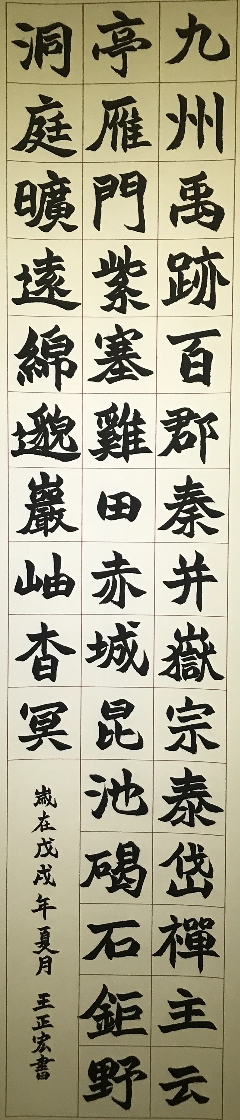 九州禹跡百郡秦并嶽宗泰岱禪主云
亭雁門紫塞雞田赤城昆池碣石鉅野
洞庭曠遠綿邈巖岫杳冥
歲在戊戌年夏月 王正宏書